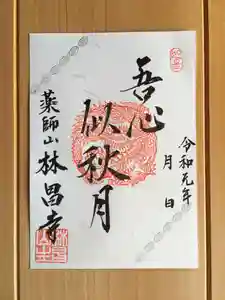 令和元年
月 日
吾心
似秋月
薬師山 林昌寺